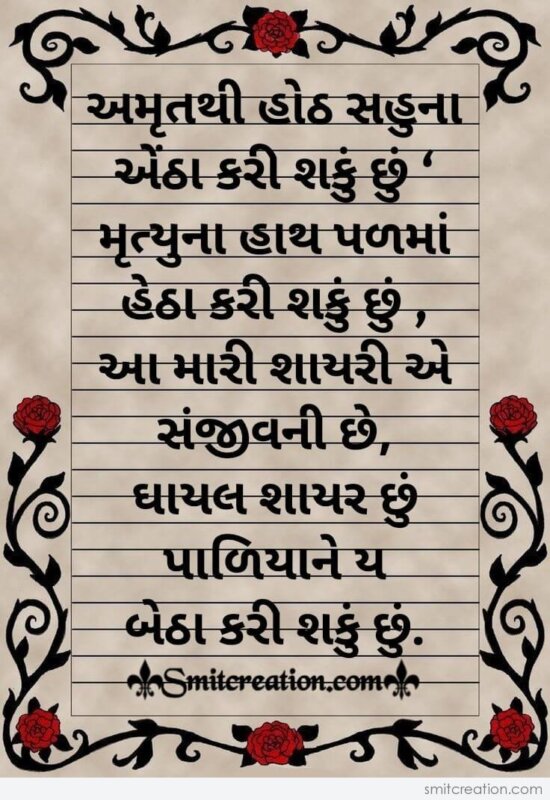 અમૃતથી હોઠ સહુના
એંઠા કરી શકું છું ‘
મૃત્યુના હાથ પળમાં
હેઠા કરી શકું છું ,
આ મારી શાયરી એ
સંજીવની છે,
ઘાયલ શાયર છું
પાળિયાને ય
બેઠા કરી શકું છું.
Smitcreation.com
smitcreation.com